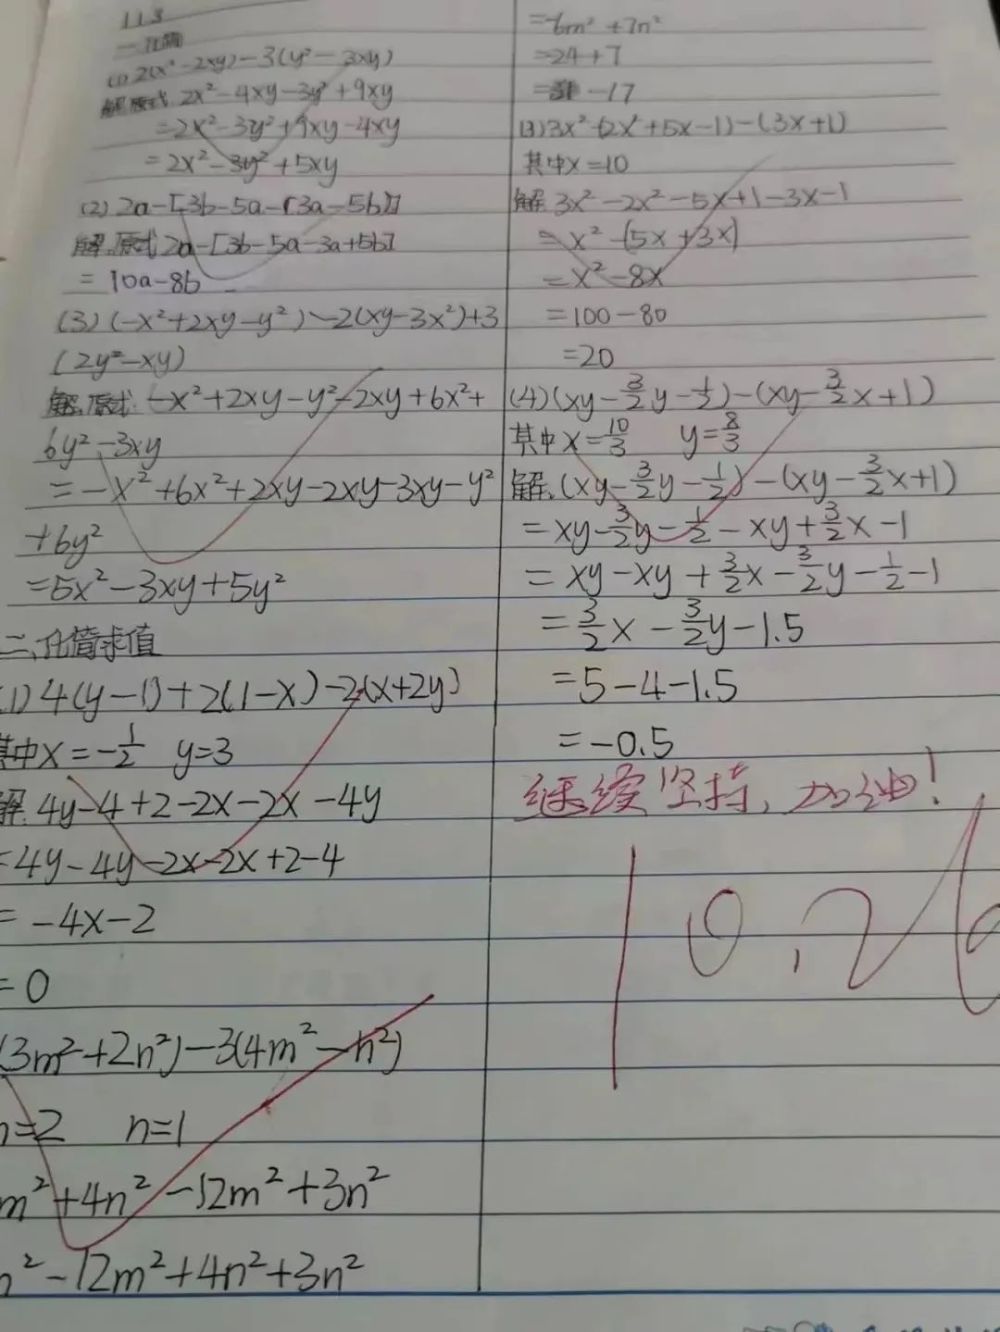 11.3
一.化简
(1) 2(x²-2xy)-3(y²-3xy)
解.原式 2x²-4xy-3y²+9xy
=2x²-3y²+9xy-4xy
=2x²-3y²+5xy
(2) 2a-[3b-5a-(3a-5b)]
解.原式 2a-[3b-5a-3a+5b]
=10a-8b
(3) (-x²+2xy-y²)-2(xy-3x²)+3
(2y²-xy)
解.原式 -x²+2xy-y²-2xy+6x²+
6y²-3xy
=-x²+6x²+2xy-2xy-3xy-y²
+6y²
=5x²-3xy+5y²
二.化简求值
(1) 4(y-1)+2(1-x)-2(x+2y)
其中x=-1/2 y=3
解.4y-4+2-2x-2x-4y
=4y-4y-2x-2x+2-4
=-4x-2
=0
(3m²+2n²)-3(4m²-n²)
=2 n=1
m²+4n²-12m²+3n²
²-12m²+4n²+3n²
=-6m²+7n²
=24+7
=-17
(3) 3x²-(2x²+5x-1)-(3x+1)
其中x=10
解.3x²-2x²-5x+1-3x-1
=x²-(5x+3x)
=x²-8x
=100-80
=20
(4) (xy-3/2y-1/2)-(xy-3/2x+1)
其中x=10/3 y=8/3
解.(xy-3/2y-1/2)-(xy-3/2x+1)
=xy-3/2y-1/2-xy+3/2x-1
=xy-xy+3/2x-3/2y-1/2-1
=3/2x-3/2y-1.5
=5-4-1.5
=-0.5
继续坚持,加油!
10.26